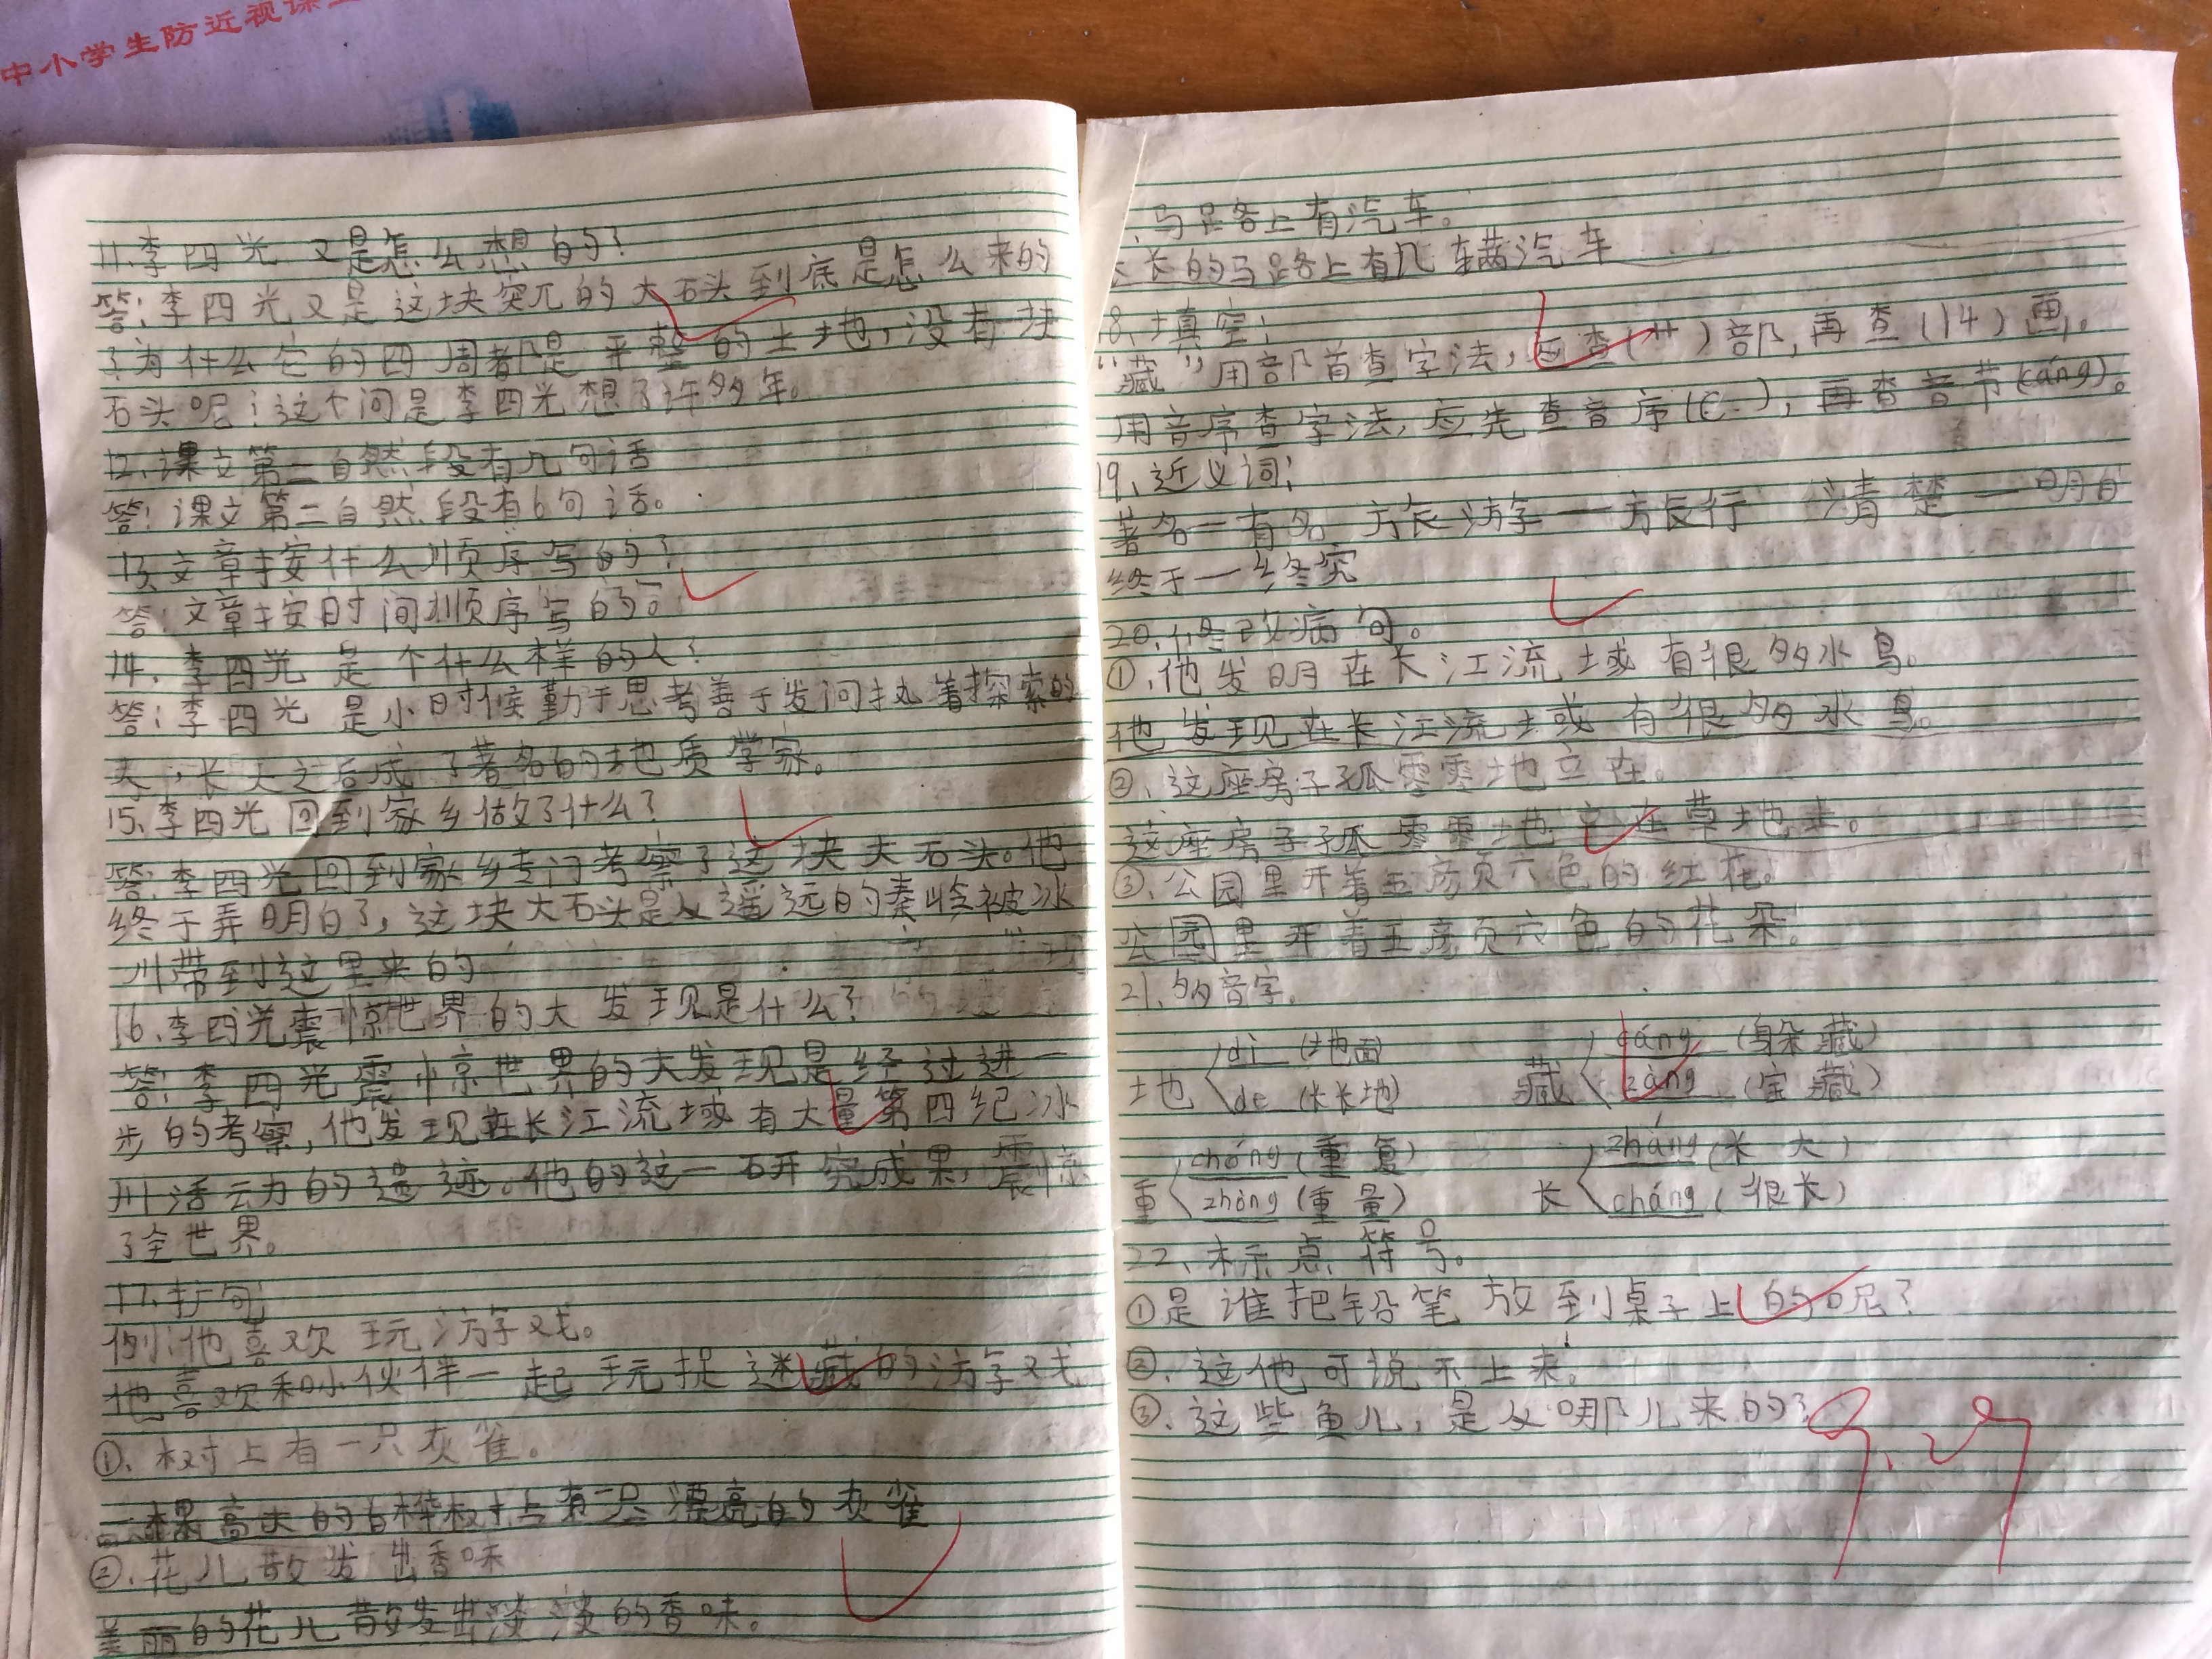 中小学生防近视课
11、李四光又是怎么想的?
答:李四光又是这块突兀的大石头到底是怎么来的
?为什么它的四周都是平整的土地,没有块
石头呢?这个问是李四光想了许多年。
12、课文第二自然段有几句话
答:课文第二自然段有6句话。
13、文章按什么顺序写的?
答:文章按时间顺序写的。
14、李四光是个什么样的人?
答:李四光是小时候勤于思考善于发问执着探索的
,长大之后成了著名的地质学家。
15、李四光回到家乡做了什么?
答:李四光回到家乡专门考察了这块大石头。他
终于弄明白了,这块大石头是从遥远的秦岭被冰
川带到这里来的
16、李四光震惊世界的大发现是什么?
答:李四光震惊世界的大发现是经过进一
步的考察,他发现在长江流域有大量第四纪冰
川活动的遗迹。他的这一研究成果,震惊
了全世界。
17、扩句
例:他喜欢玩游戏。
他喜欢和小伙伴一起玩捉迷藏的游戏
①、树上有一只灰雀。
一棵高大的白桦树上有一只漂亮的灰雀
②、花儿散发出香味
美丽的花儿散发出淡淡的香味。
、马路上有汽车。
长的马路上有几辆汽车
18、填空:
“藏”用部首查字法,应查(艹)部,再查(14)画。
用音序查字法,应先查音序(C),再查音节(cáng)。
19、近义词:
著名一有名 旅游一旅行 清楚一明白
终于一终究
20、修改病句。
①、他发明在长江流域有很多水鸟。
他发现在长江流域有很多水鸟。
②、这座房子孤零零地立在。
这座房子孤零零地立在草地上。
③、公园里开着五颜六色的红花。
公园里开着五颜六色的花朵。
21、多音字。
地 dì (地面) 藏 cáng (躲藏)
de (长长地) zàng (宝藏)
重 chóng (重复) 长 zhǎng (长大)
zhòng (重量) cháng (很长)
22、标点符号。
①是谁把铅笔放到桌子上的呢?
②、这他可说不上来。
③、这些鱼儿,是从哪儿来的?
9.29